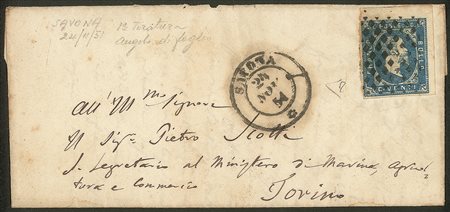 SAVONA
24/11/51
1a tiratura
angolo di foglio
SAVONA
24
NOV.
51
C. VENTI
All' Ill mo Signore
Il Sigr Pietro
S. Segretario al Ministero di Marina, Agricol
tura e commercio
Torino